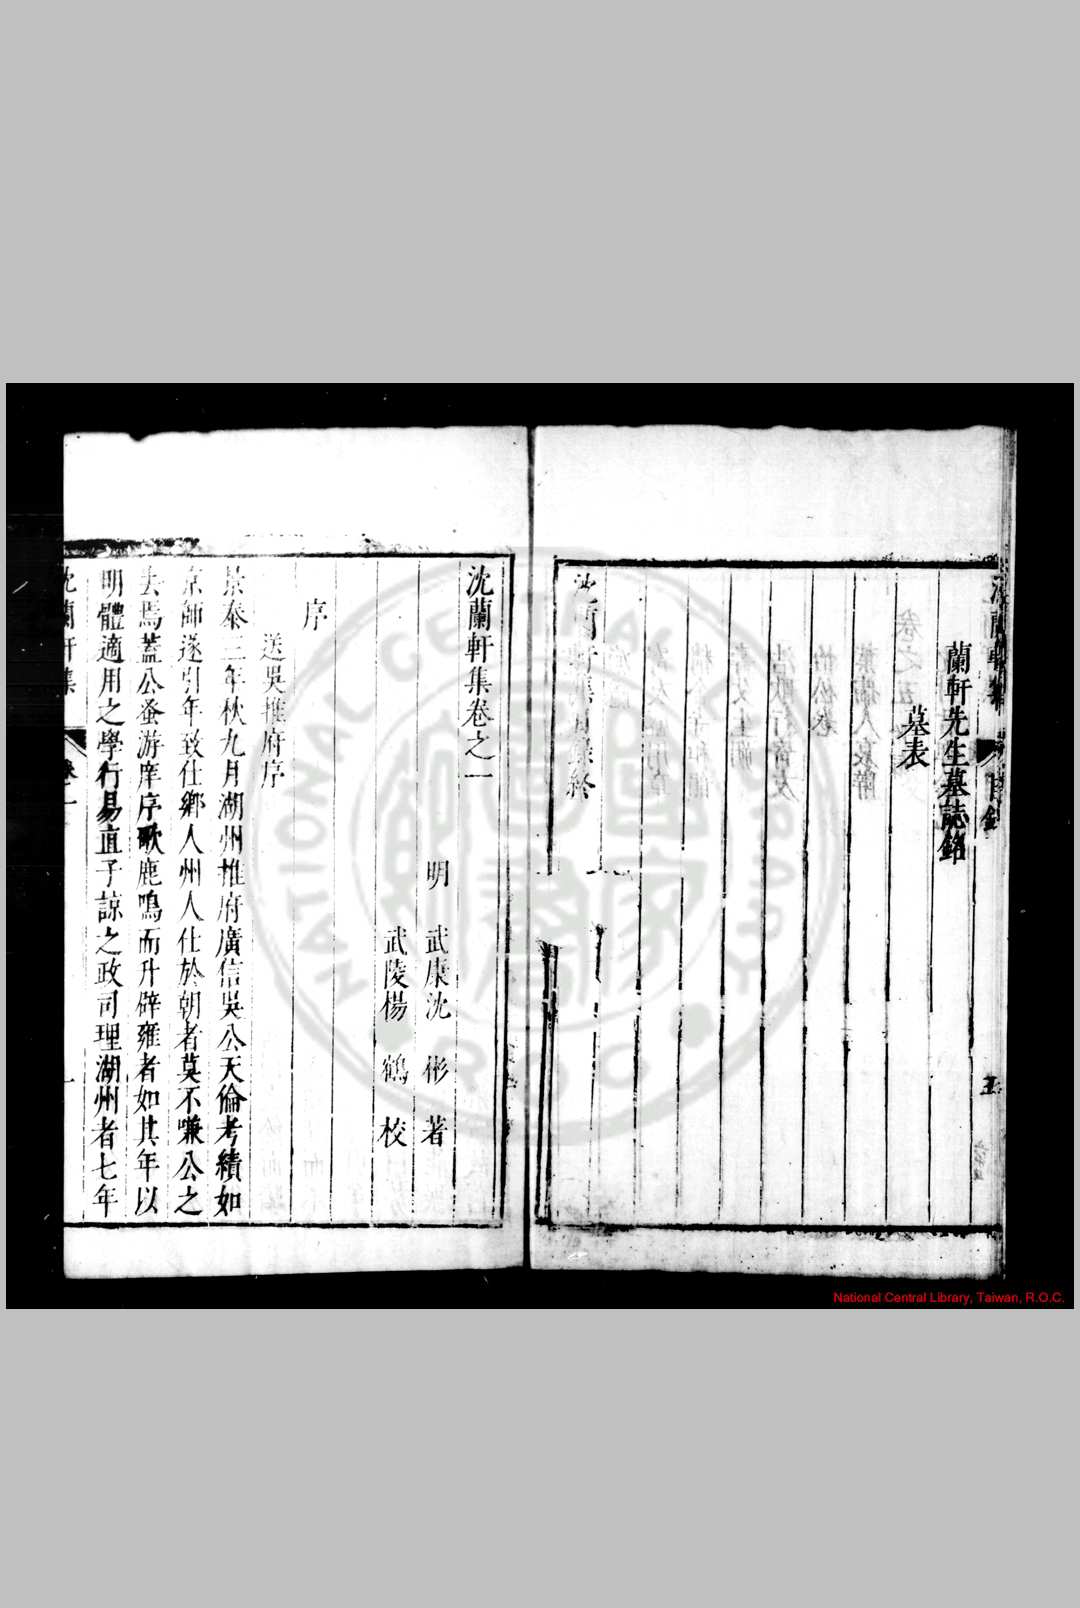 蘭軒先生墓誌銘
墓表
沈蘭軒集目錄終
沈蘭軒集卷之一
明 武康沈 彬 著
武陵楊 鶴 校
序
送吳推府序
景泰三年秋九月湖州推府廣信吳公天倫考績如
京師遂引年致仕鄉人州人仕於朝者莫不嗛公之
去焉蓋公蚤游庠序歌鹿鳴而升辟雍者如其年以
明體適用之學行易直子諒之政司理湖州者七年
沈蘭軒集 卷一 一
National Central Library, Taiwan, R.O.C.